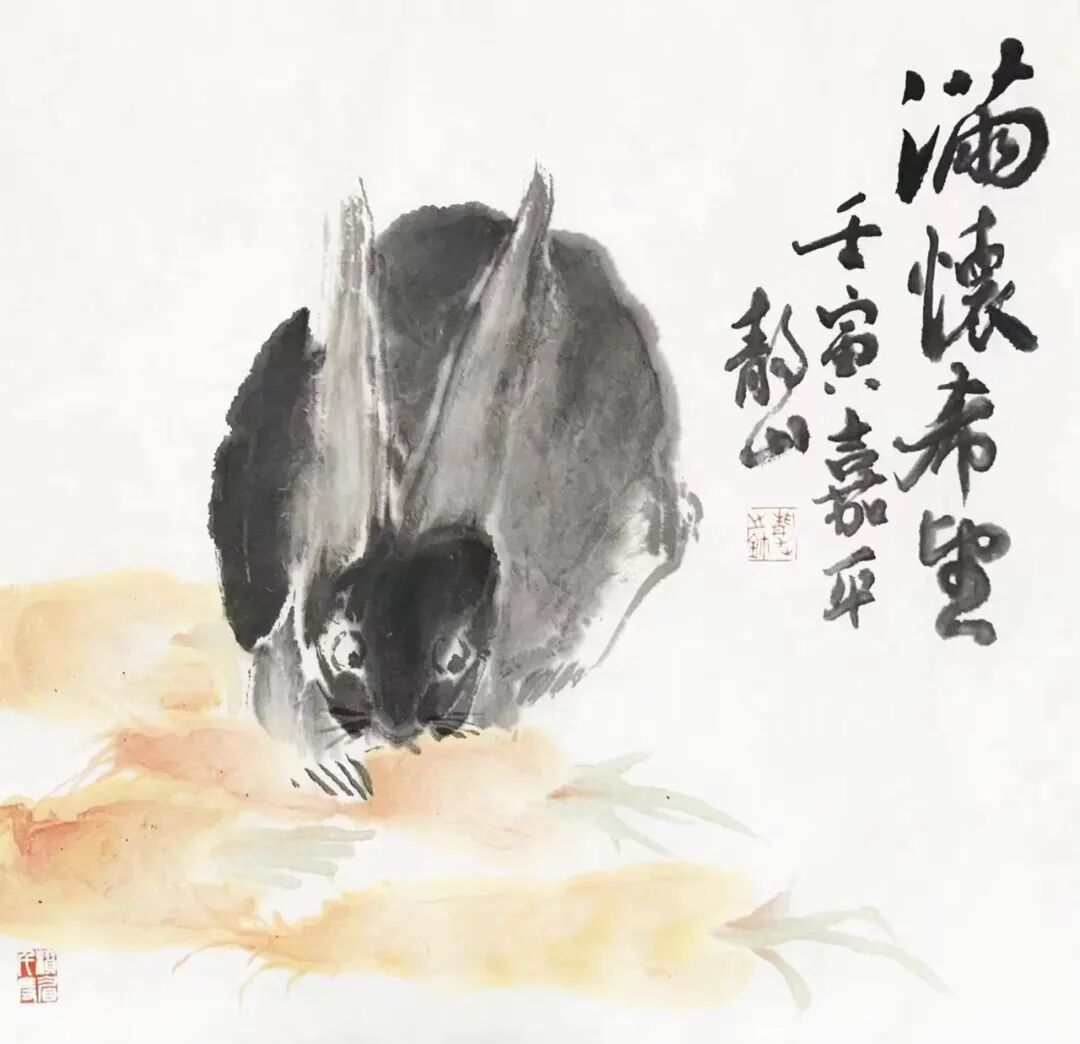 满懐希望
壬寅嘉平
静山